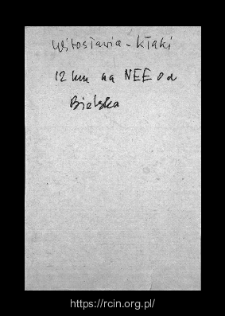 Witosławia - Kłaki
12 km na NEE od
Bielska
https://rcin.org.pl/